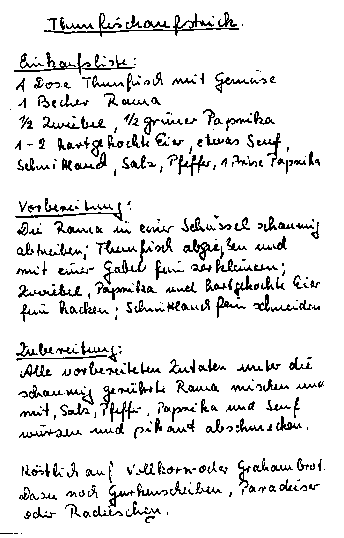 Thunfischaufstrich.
Einkaufsliste:
1 Dose Thunfisch mit Gemüse
1 Becher Rama
1/2 Zwiebel, 1/2 grüner Paprika
1-2 hartgekochte Eier, etwas Senf,
Schnittlauch, Salz, Pfeffer, 1 Prise Paprika
Vorbereitung:
Die Rama in einer Schüssel schaumig
abtreiben; Thunfisch abgießen und
mit einer Gabel fein zerkleinern;
Zwiebel, Paprika und hartgekochte Eier
fein hacken; Schnittlauch fein schneiden
Zubereitung:
Alle vorbereiteten Zutaten unter die
schaumig gerührte Rama mischen und
mit, Salz, Pfeffer, Paprika und Senf
würzen und pikant abschmecken.
Köstlich auf Vollkorn- oder Grahambrot.
Dazu noch Gurkenscheiben, Paradeiser
oder Radieschen.